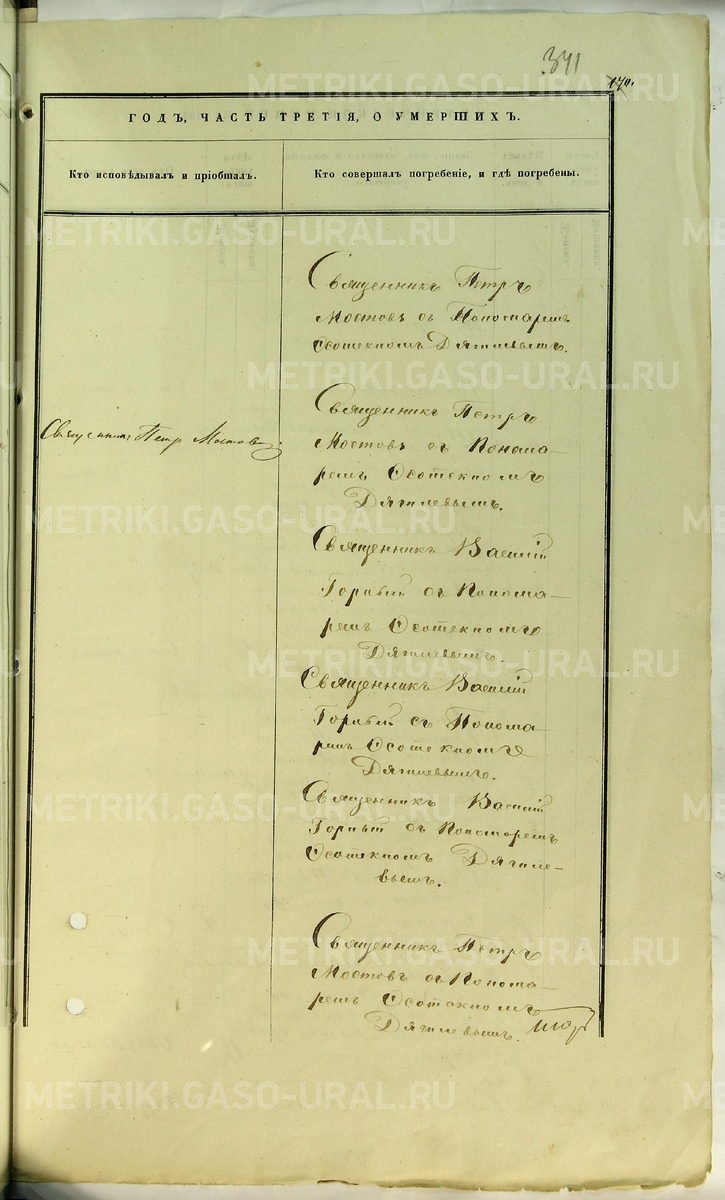 341
170.
ГОДЪ, ЧАСТЬ ТРЕТІЯ, О УМЕРШИХЪ.
Кто исповѣдывалъ и пріобщалъ.
Кто совершалъ погребеніе, и гдѣ погребены.
Священникъ Петръ
Мостовъ съ Пономаремъ
Ѳеотекномъ Дягилевымъ.
Священникъ Петръ Мостовъ
Священникъ Петръ
Мостовъ съ Понома-
ремъ Ѳеотекномъ
Дягилевымъ.
Священникъ Василій
съ Понома-
ремъ Ѳеотекномъ
Дягилевымъ.
Священникъ Василій
съ Понома
ремъ Ѳеотекномъ
Дягилевымъ.
Священникъ Василій
съ Пономаремъ
Ѳеотекномъ Дягиле-
вымъ.
Священникъ Петръ
Мостовъ съ Понома
ремъ Ѳеотекномъ
Дягилевымъ.
METRIKI.GASO-URAL.RU
METRIKI.GASO-URAL.RU
METRIKI.GASO-URAL.RU
METRIKI.GASO-URAL.RU
METRIKI.GASO-URAL.RU
METRIKI.GASO-URAL.RU
METRIKI.GASO-URAL.RU
METRIKI.GASO-URAL.RU